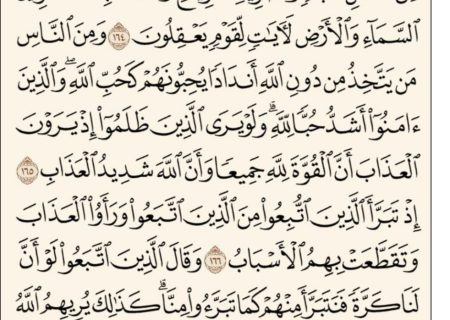 ٱلسَّمَآءِ وَٱلۡأَرۡضِ لَأٓيَٰتٖ لِّقَوۡمٖ يَعۡقِلُونَ ١٦٤ وَمِنَ ٱلنَّاسِ
مَن يَتَّخِذُ مِن دُونِ ٱللَّهِ أَندَادٗا يُحِبُّونَهُمۡ كَحُبِّ ٱللَّهِۖ وَٱلَّذِينَ
ءَامَنُوٓاْ أَشَدُّ حُبّٗا لِّلَّهِۗ وَلَوۡ يَرَى ٱلَّذِينَ ظَلَمُوٓاْ إِذۡ يَرَوۡنَ
ٱلۡعَذَابَ أَنَّ ٱلۡقُوَّةَ لِلَّهِ جَمِيعٗا وَأَنَّ ٱللَّهَ شَدِيدُ ٱلۡعَذَابِ ١٦٥
إِذۡ تَبَرَّأَ ٱلَّذِينَ ٱتُّبِعُواْ مِنَ ٱلَّذِينَ ٱتَّبَعُواْ وَرَأَوُاْ ٱلۡعَذَابَ
وَتَقَطَّعَتۡ بِهِمُ ٱلۡأَسۡبَابُ ١٦٦ وَقَالَ ٱلَّذِينَ ٱتَّبَعُواْ لَوۡ أَنَّ
لَنَا كَرَّةٗ فَنَتَبَرَّأَ مِنۡهُمۡ كَمَا تَبَرَّءُواْ مِنَّاۗ كَذَٰلِكَ يُرِيهِمُ ٱللَّهُ